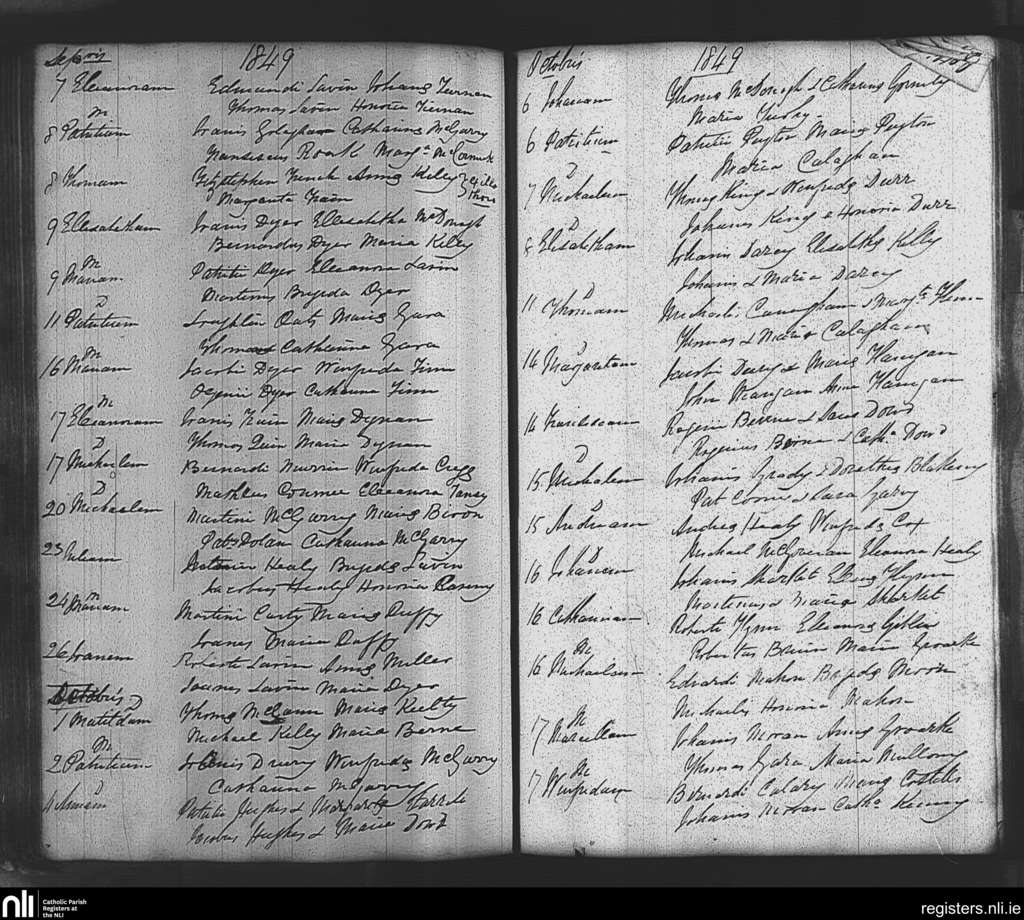 Sepbris 1849
7 Eleanoram Edmundi Lavin Johana Tiernan
Thomas Lavin Honoria Tiernan
M
8 Patritium Joanis Golaghan Catharina McGarry
Franciscus Roark Margta McCormick
8 Thomam Fitzstephen French Anna Kelly
Margarita
9 Elisabetham Joanis Dyer Elisabetha McDonagh
Bernardus Dyer Maria Kelly
M
9 Mariam Patritii Dyer Eleanora Lavin
Martinus Brigida Dyer
D
11 Patritium Loughlin Maria Gara
Thomas Catharina Gara
M
16 Mariam Jacobi Dyer Winifreda Finn
Dyer Catharina Finn
M
17 Eleanoram Joanis Maria Dignan
Thomas Quin Maria Dignan
D
17 Michaelem Bernardi Winifreda Cregg
Matheus Eleanora Tansy
D
20 Michaelem Martini McGarry Maria Biron
Patt Dolan Catharina McGarry
23 Juliam Healy Brigida Lavin
Jacobus Healy Honoria
M
24 Mariam Martini Carty Maria Duffy
Joanes Maria Duffy
26 Joanem Roberti Lavin Anna Miller
James Lavin Maria Dyer
Octobris
D
1 Matildam Thoma McCann Maria Kielty
Michael Kelly Maria Berne
M
2 Patritium Joanis Drury Winifreda McGarry
Catharina McGarry
D
4 Patritii Hughes & Margarita
Jacobus Hughes & Maria Dowd
Octobris 1849
6 Johanam Thoma McDonogh & Catharina Gormly
Maria
6 Patritium Patritii Peyton Maria Peyton
Maria Calaghan
D
7 Michaelem Thoma King & Winifreda Durr
Johanis King & Honoria Durr
D
8 Elisabetham Johanis Darcy Elisabetha Kelly
Johanis & Maria Darcy
D
11 Thomam Michaeli Cunigham & Margta
Thomas & Maria Calaghan
D
14 Margaretam Jacobi Drury & Maria Flanigan
John Mangan Anna Flanigan
14 Rogerii Beirne & Sara Dowd
Rogerius Berne & Catha Dowd
D
15 Michaelem Johanis Grady Dorothea Blakeny
Pat & Sara Gary
15 Andream Andrea Healy Winifreda Cox
Michael McGovran Eleanora Healy
D
16 Johanem Johanis Market Elena Flynn
Martinus & Maria Market
16 Catharinam Roberti Flynn Eleanora Giblin
Robertus Maria Groarke
M
16 Michaelem Edvardi Mahon Brigida Moron
Michaelis Honoria Mahon
M
17 Marcellam Johanis Moran Anna Groarke
Thomas Gara Maria Mullony
M
17 Winifridam Bernardi Calary Maria Costello
Johanis Moran Catha Kenny
nli Catholic Parish
Registers at
the NLI
registers.nli.ie